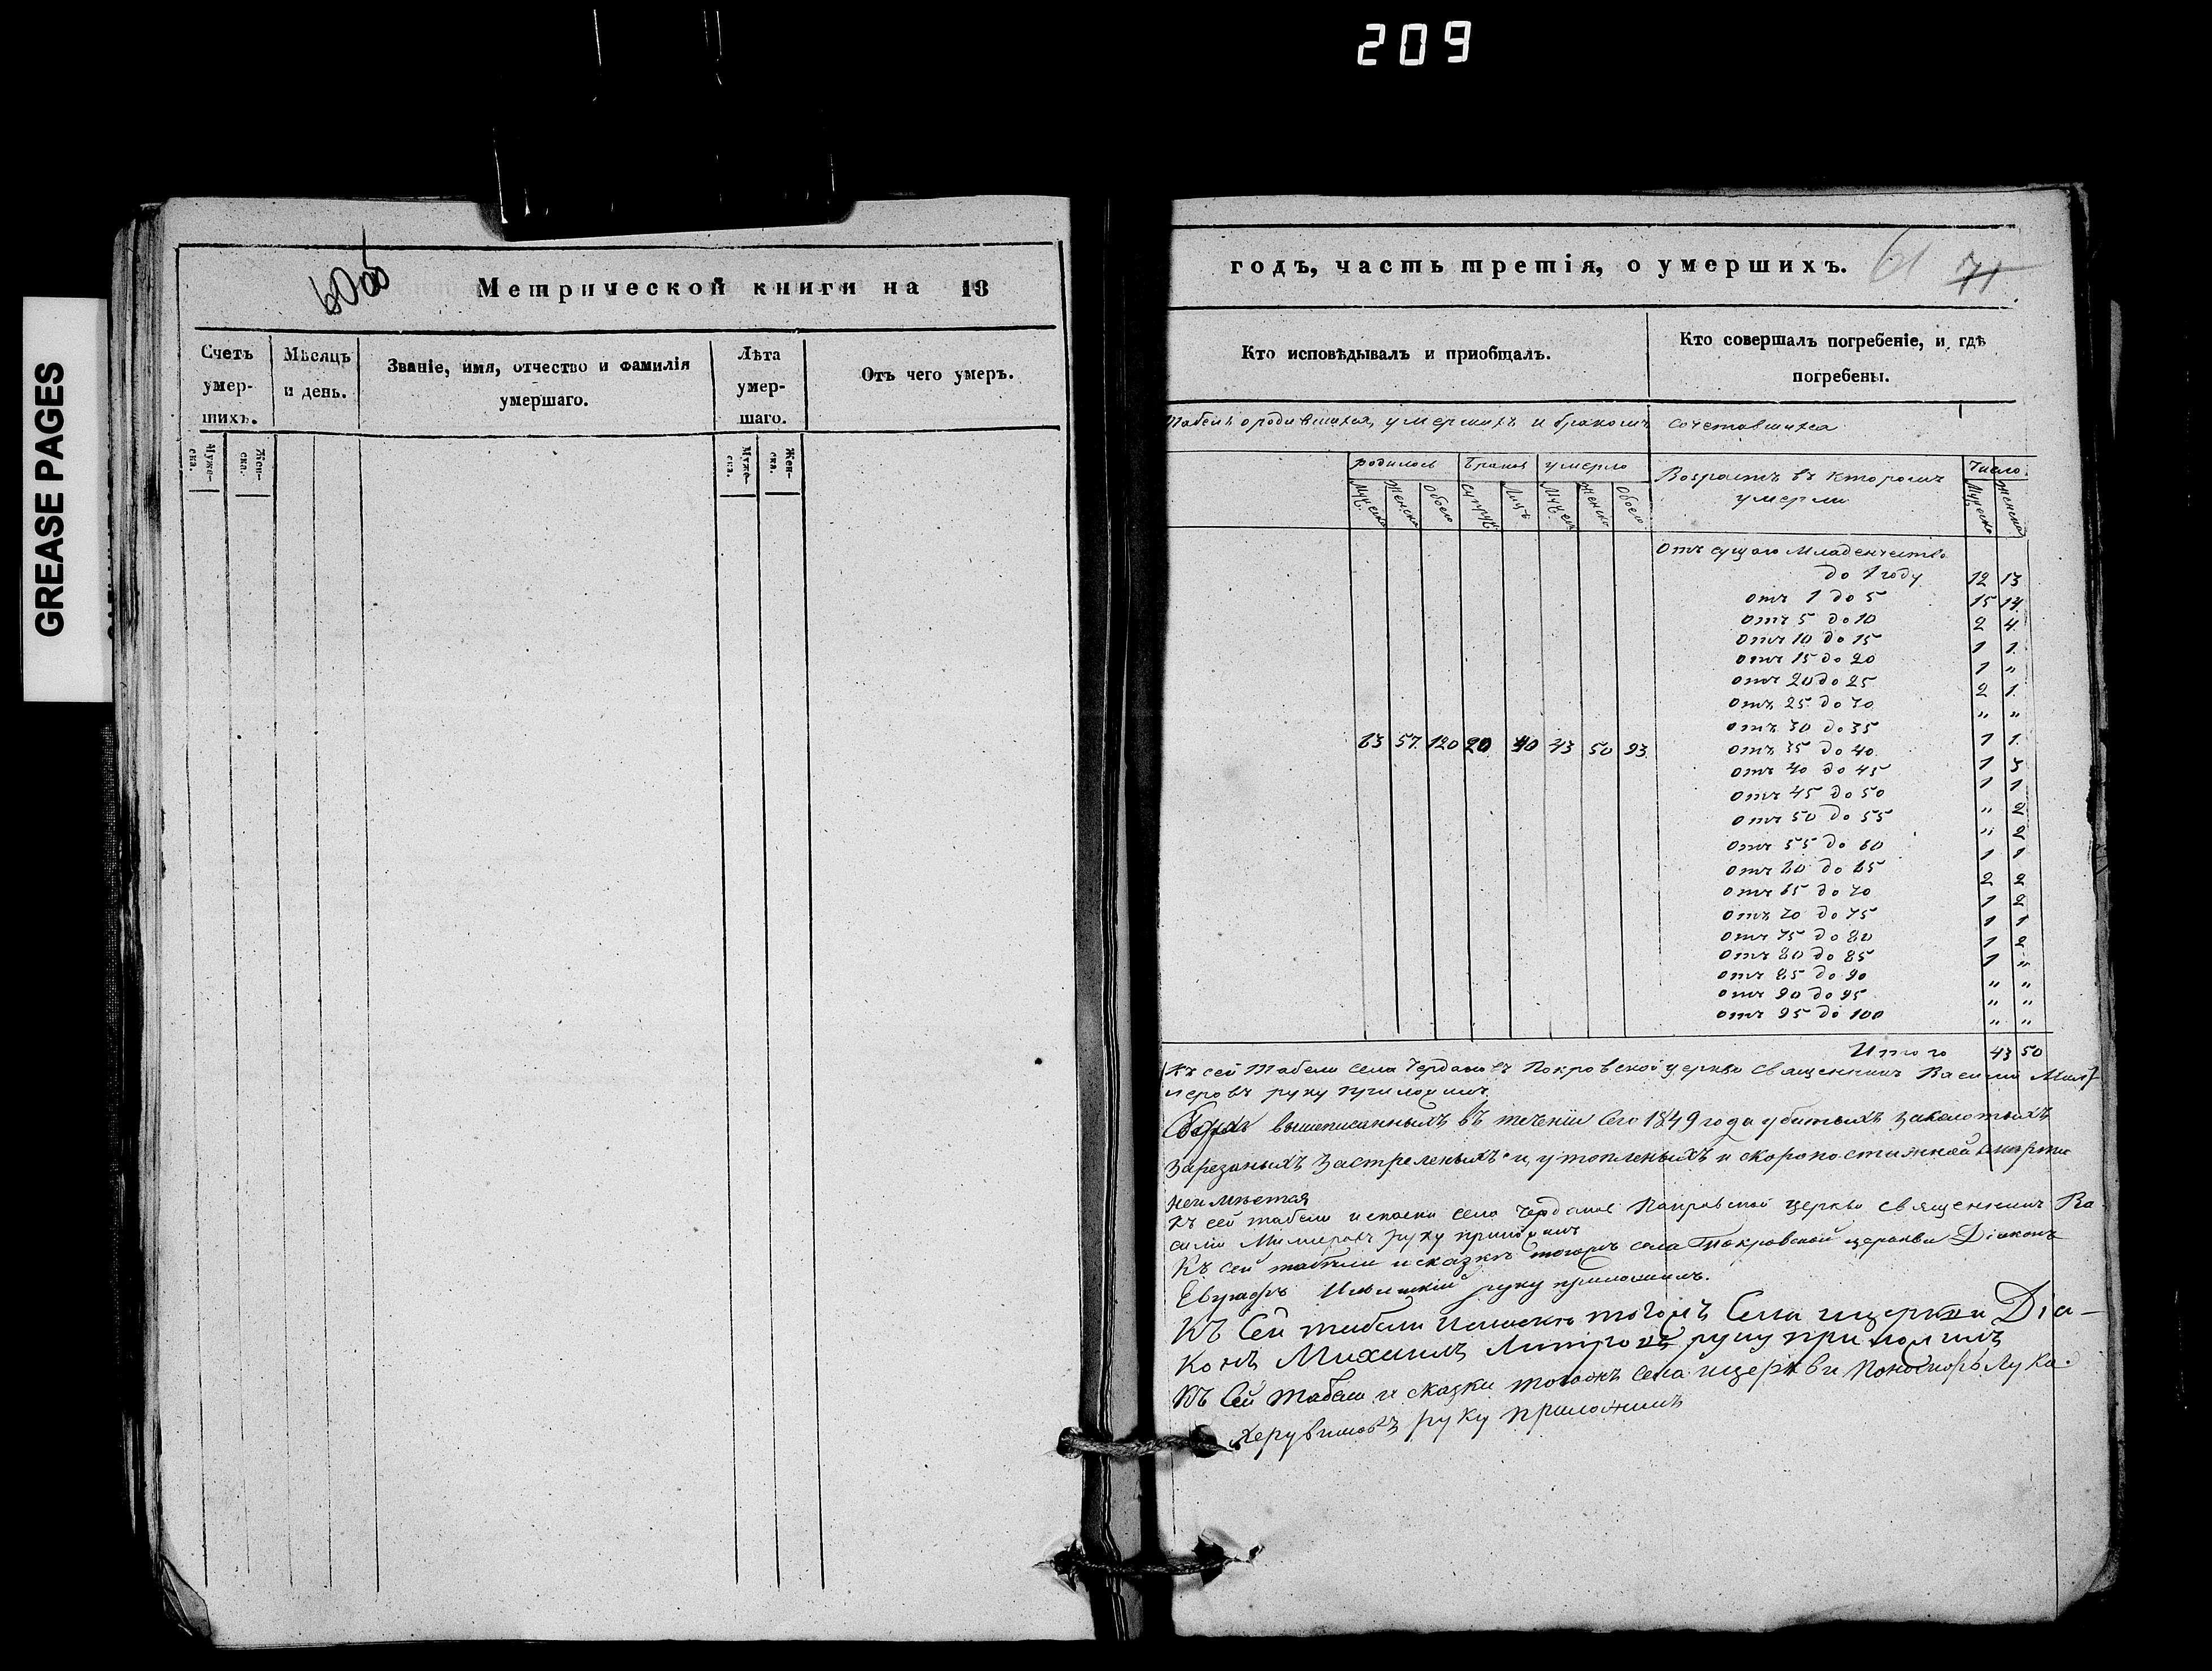 209
GREASE PAGES
60об
Метрической книги на 18
Счетъ умер-шихъ.
Мѣсяцъ и день.
Званіе, имя, отчество и фамилія умершаго.
Лѣта умер-шаго.
Отъ чего умеръ.
Муже-ска.
Жен-ска.
Муже-ска.
Жен-ска.
годъ, часть третія, о умершихъ.
61 71
Кто исповѣдывалъ и пріобщалъ.
Кто совершалъ погребеніе, и гдѣ погребены.
Табель о родившихся, умершихъ и бракомъ сочетавшихся
родилось браков умерло
Возрастъ въ котором умерли
Число
Мужеска Женска Обоего Супруж. Лицъ Мужеск Женска Обоего
Мужеска Женска
Отъ сущаго младенчества
до 1 году 12 13
отъ 1 до 5 15 14
отъ 5 до 10 2 4
отъ 10 до 15 1 1
отъ 15 до 20 1 "
отъ 20 до 25 2 1
отъ 25 до 30 " "
отъ 30 до 35 1 1
63 57 120 20 40 43 50 93
отъ 35 до 40 1 3
отъ 40 до 45 1 1
отъ 45 до 50 " 2
отъ 50 до 55 " 2
отъ 55 до 60 1 1
отъ 60 до 65 2 2
отъ 65 до 70 1 2
отъ 70 до 75 1 1
отъ 75 до 80 1 2
отъ 80 до 85 1 "
отъ 85 до 90 " "
отъ 90 до 95 " "
отъ 95 до 100 " "
Итого 43 50
Къ сей табели села Чердаковъ Покровской церкви священникъ Василій
руку приложилъ.
вышеписанныхъ въ теченіи сего 1849 года убитыхъ заколотыхъ
зарезаныхъ застреленыхъ и утопленыхъ и скоропостижной смертью
неимѣется
Къ сей табели и скаски села Покровской церкви священникъ Ва
силій руку приложилъ
Къ сей табели и сказкѣ тогожъ села Покровской церкви Діаконъ
Евграфъ руку приложилъ.
Къ Сей табели тогожъ Села и церкви Діа-
конъ Михаилъ руку приложилъ
Къ Сей табели и сказки тогожъ села и церкви Пономорь Лука
Херувимовъ руку приложилъ